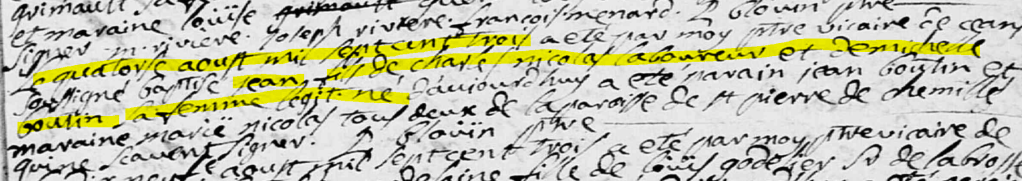 et maraine louise grimault
signer m. riviere. Joseph riviere. francois menard. P blouin ptre
Le quatorse aoust mil sept cent trois a eté par moy ptre vicaire de ceans
soussigné baptisé jean fils de charles nicolas laboureur et de michelle
boutin sa femme legit. né d'aujourdhuy a eté parain jean boutin et
maraine marie nicolas tous deux de la paroisse de st pierre de chemille
qui ne scavent signer. P blouin ptre
aoust mil sept cent trois a eté par moy ptre vicaire de
fille de louis